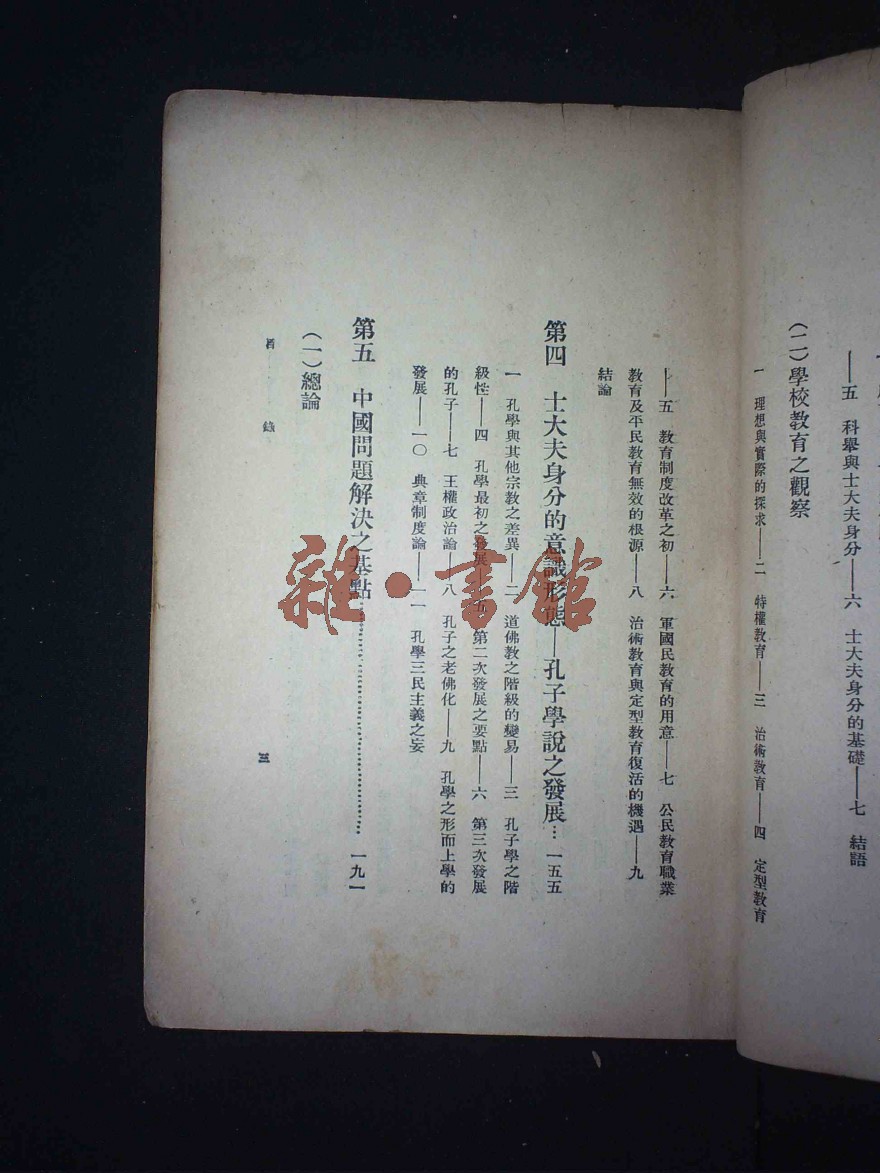 ——五　科舉與士大夫身分——六　士大夫身分的基礎——七　結語
（二）學校教育之觀察
一　理想與實際的探求——二　特權教育——三　治術教育——四　定型教育
——五　教育制度改革之初——六　軍國民教育的用意——七　公民教育職業
教育及平民教育無效的根源——八　治術教育與定型教育復活的機遇——九
結論
第四　士大夫身分的意識形態——孔子學說之發展…一五五
一　孔學與其他宗教之差異——二　道佛教之階級的變易——三　孔子學之階
級性——四　孔學最初之發展——五　第二次發展之要點——六　第三次發展
的孔子——七　王權政治論——八　孔子之老佛化——九　孔學之形而上學的
發展——一〇　典章制度論——一一　孔學三民主義之妄
第五　中國問題解決之基點…………一九一
（一）總論
目錄
三
雜·書館